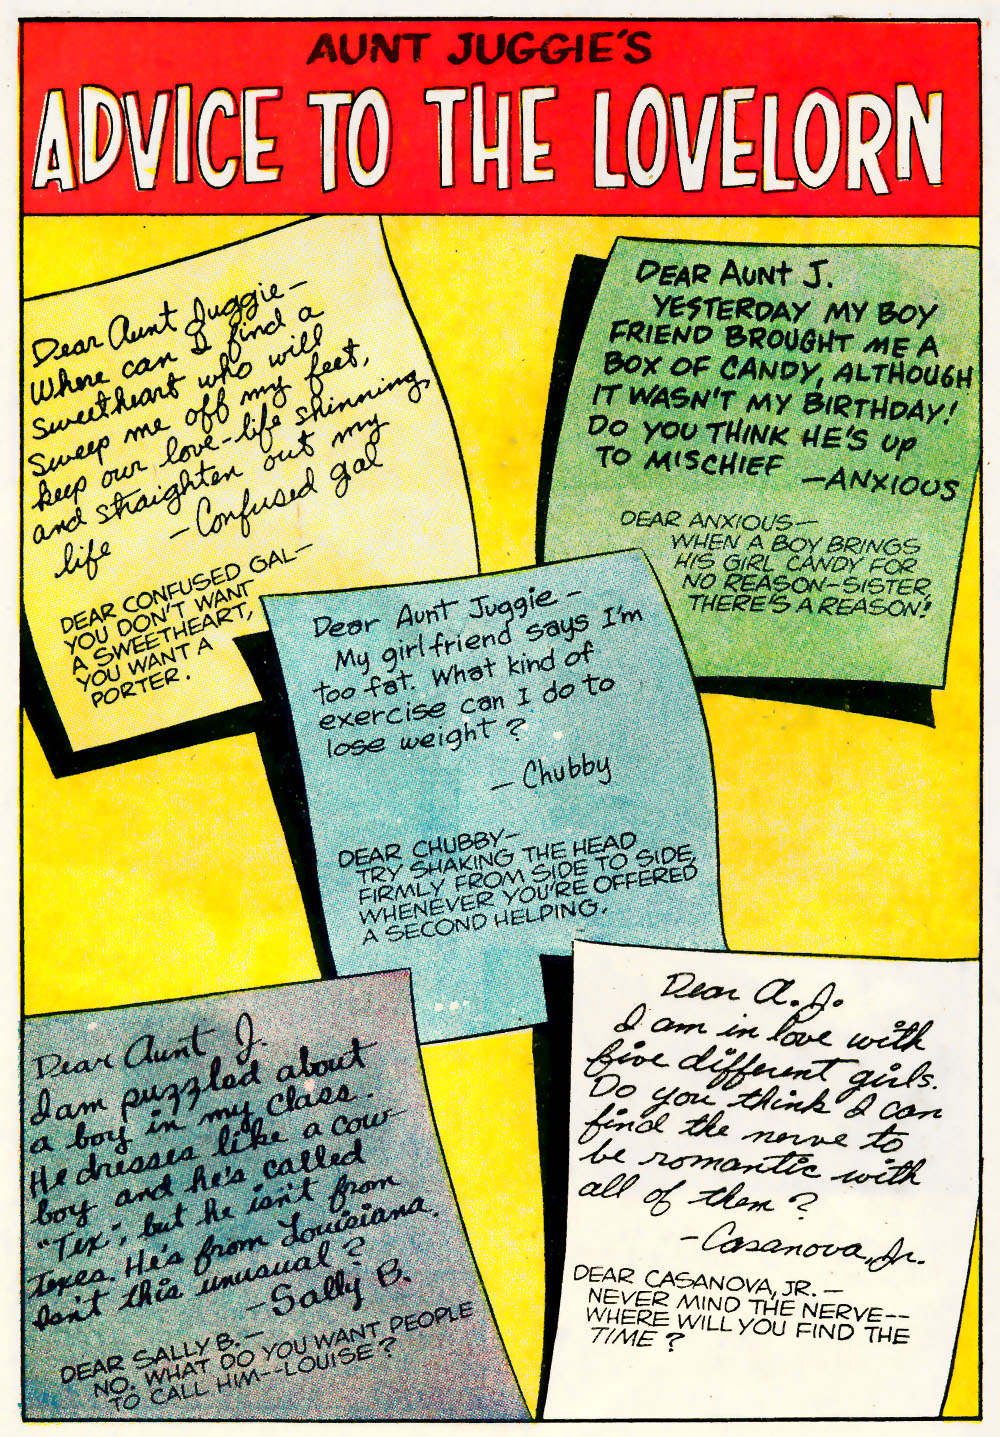 AUNT JUGGIE'S
ADVICE TO THE LOVELORN
Dear Aunt Juggie—
Where can I find a
sweetheart who will
sweep me off my feet,
keep our love-life shinning,
and straighten out my
life —Confused gal
DEAR CONFUSED GAL—
YOU DON'T WANT
A SWEETHEART,
YOU WANT A
PORTER.
DEAR AUNT J.
YESTERDAY MY BOY
FRIEND BROUGHT ME A
BOX OF CANDY, ALTHOUGH
IT WASN'T MY BIRTHDAY!
DO YOU THINK HE'S UP
TO MISCHIEF
—ANXIOUS
DEAR ANXIOUS—
WHEN A BOY BRINGS
HIS GIRL CANDY FOR
NO REASON—SISTER,
THERE'S A REASON!
Dear Aunt Juggie—
My girlfriend says I'm
too fat. What kind of
exercise can I do to
lose weight?
—Chubby
DEAR CHUBBY—
TRY SHAKING THE HEAD
FIRMLY FROM SIDE TO SIDE,
WHENEVER YOU'RE OFFERED
A SECOND HELPING.
Dear Aunt J.
I am puzzled about
a boy in my class.
He dresses like a cow-
boy and he's called
"Tex", but he isn't from
Texas. He's from Louisiana.
Isn't this unusual?
—Sally B.
DEAR SALLY B.—
NO. WHAT DO YOU WANT PEOPLE
TO CALL HIM--LOUISE?
Dear A.J.
I am in love with
five different girls.
Do you think I can
find the nerve to
be romantic with
all of them?
-Casanova, Jr.
DEAR CASANOVA, JR.—
NEVER MIND THE NERVE--
WHERE WILL YOU FIND THE
TIME?